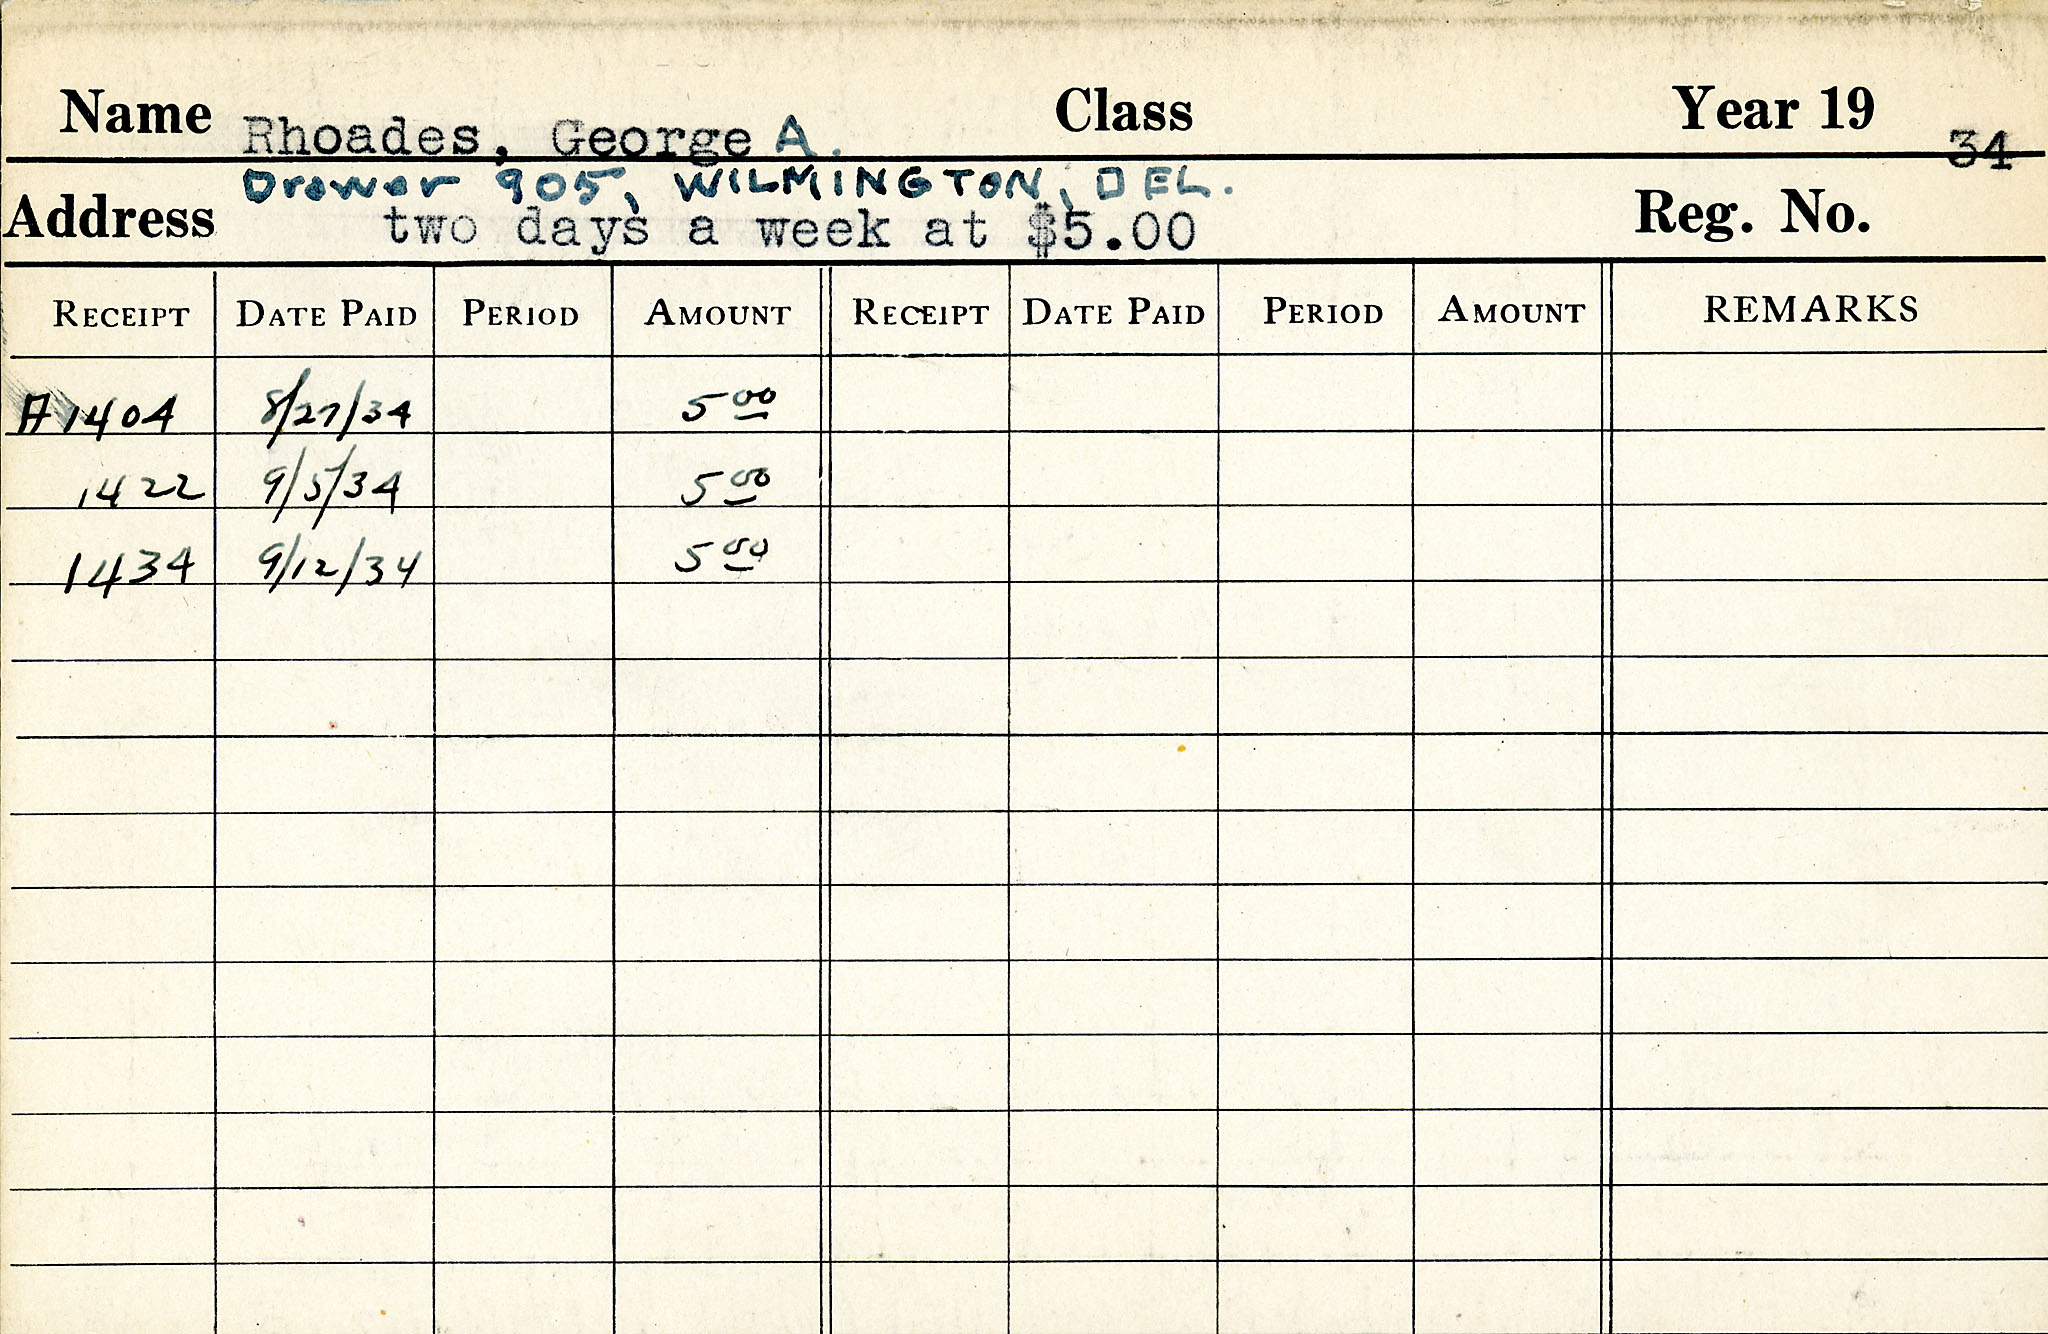 Name Rhoades, George A. Class Year 19 34
Drawer 905, WILMINGTON, DEL.
Address two days a week at $5.00 Reg. No.
RECEIPT DATE PAID PERIOD AMOUNT RECEIPT DATE PAID PERIOD AMOUNT REMARKS
A 1404 8/27/34 5 00
1422 9/5/34 5 00
1434 9/12/34 5 00